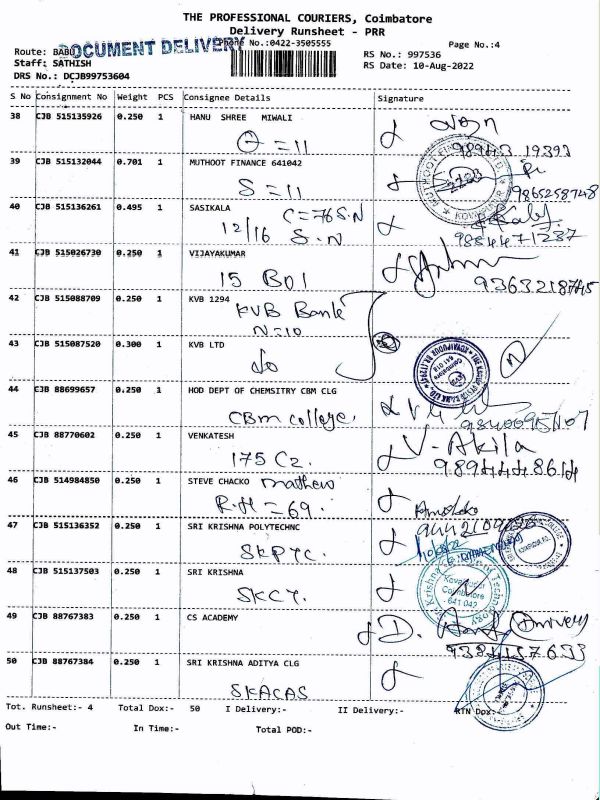 THE PROFESSIONAL COURIERS, Coimbatore
Delivery Runsheet - PRR
DOCUMENT DELIVERY
Phone No.:0422-3505555
Page No.:4
Route: BABU
RS No.: 997536
Staff: SATHISH
RS Date: 10-Aug-2022
DRS No.: DCJB99753604
S No Consignment No Weight PCS Consignee Details Signature
38 CJB 515135926 0.250 1 HANU SHREE MIWALI
= 11
98943 19393
39 CJB 515132044 0.701 1 MUTHOOT FINANCE 641042
S = 11
9865258748
40 CJB 515136261 0.495 1 SASIKALA
C=76 S.N
12/16 S.N
9884471237
41 CJB 515026730 0.250 1 VIJAYAKUMAR
15 BOI
9363218745
42 CJB 515088709 0.250 1 KVB 1294
KVB Bank
N=10
43 CJB 515087520 0.300 1 KVB LTD
44 CJB 88699657 0.250 1 HOD DEPT OF CHEMSITRY CBM CLG
CBM college,
45 CJB 88770602 0.250 1 VENKATESH
175 C2.
V-Akila
9894448614
46 CJB 514984850 0.250 1 STEVE CHACKO mathew
R.H = 69.
47 CJB 515136352 0.250 1 SRI KRISHNA POLYTECHNC
SKPTC.
48 CJB 515137503 0.250 1 SRI KRISHNA
SKCT.
Kovaipudur
Coimbatore
641 042
49 CJB 88767383 0.250 1 CS ACADEMY
9384157633
50 CJB 88767384 0.250 1 SRI KRISHNA ADITYA CLG
SKACAS
Tot. Runsheet:- 4 Total Dox:- 50 I Delivery:- II Delivery:- RTN Dox:-
Out Time:- In Time:- Total POD:-